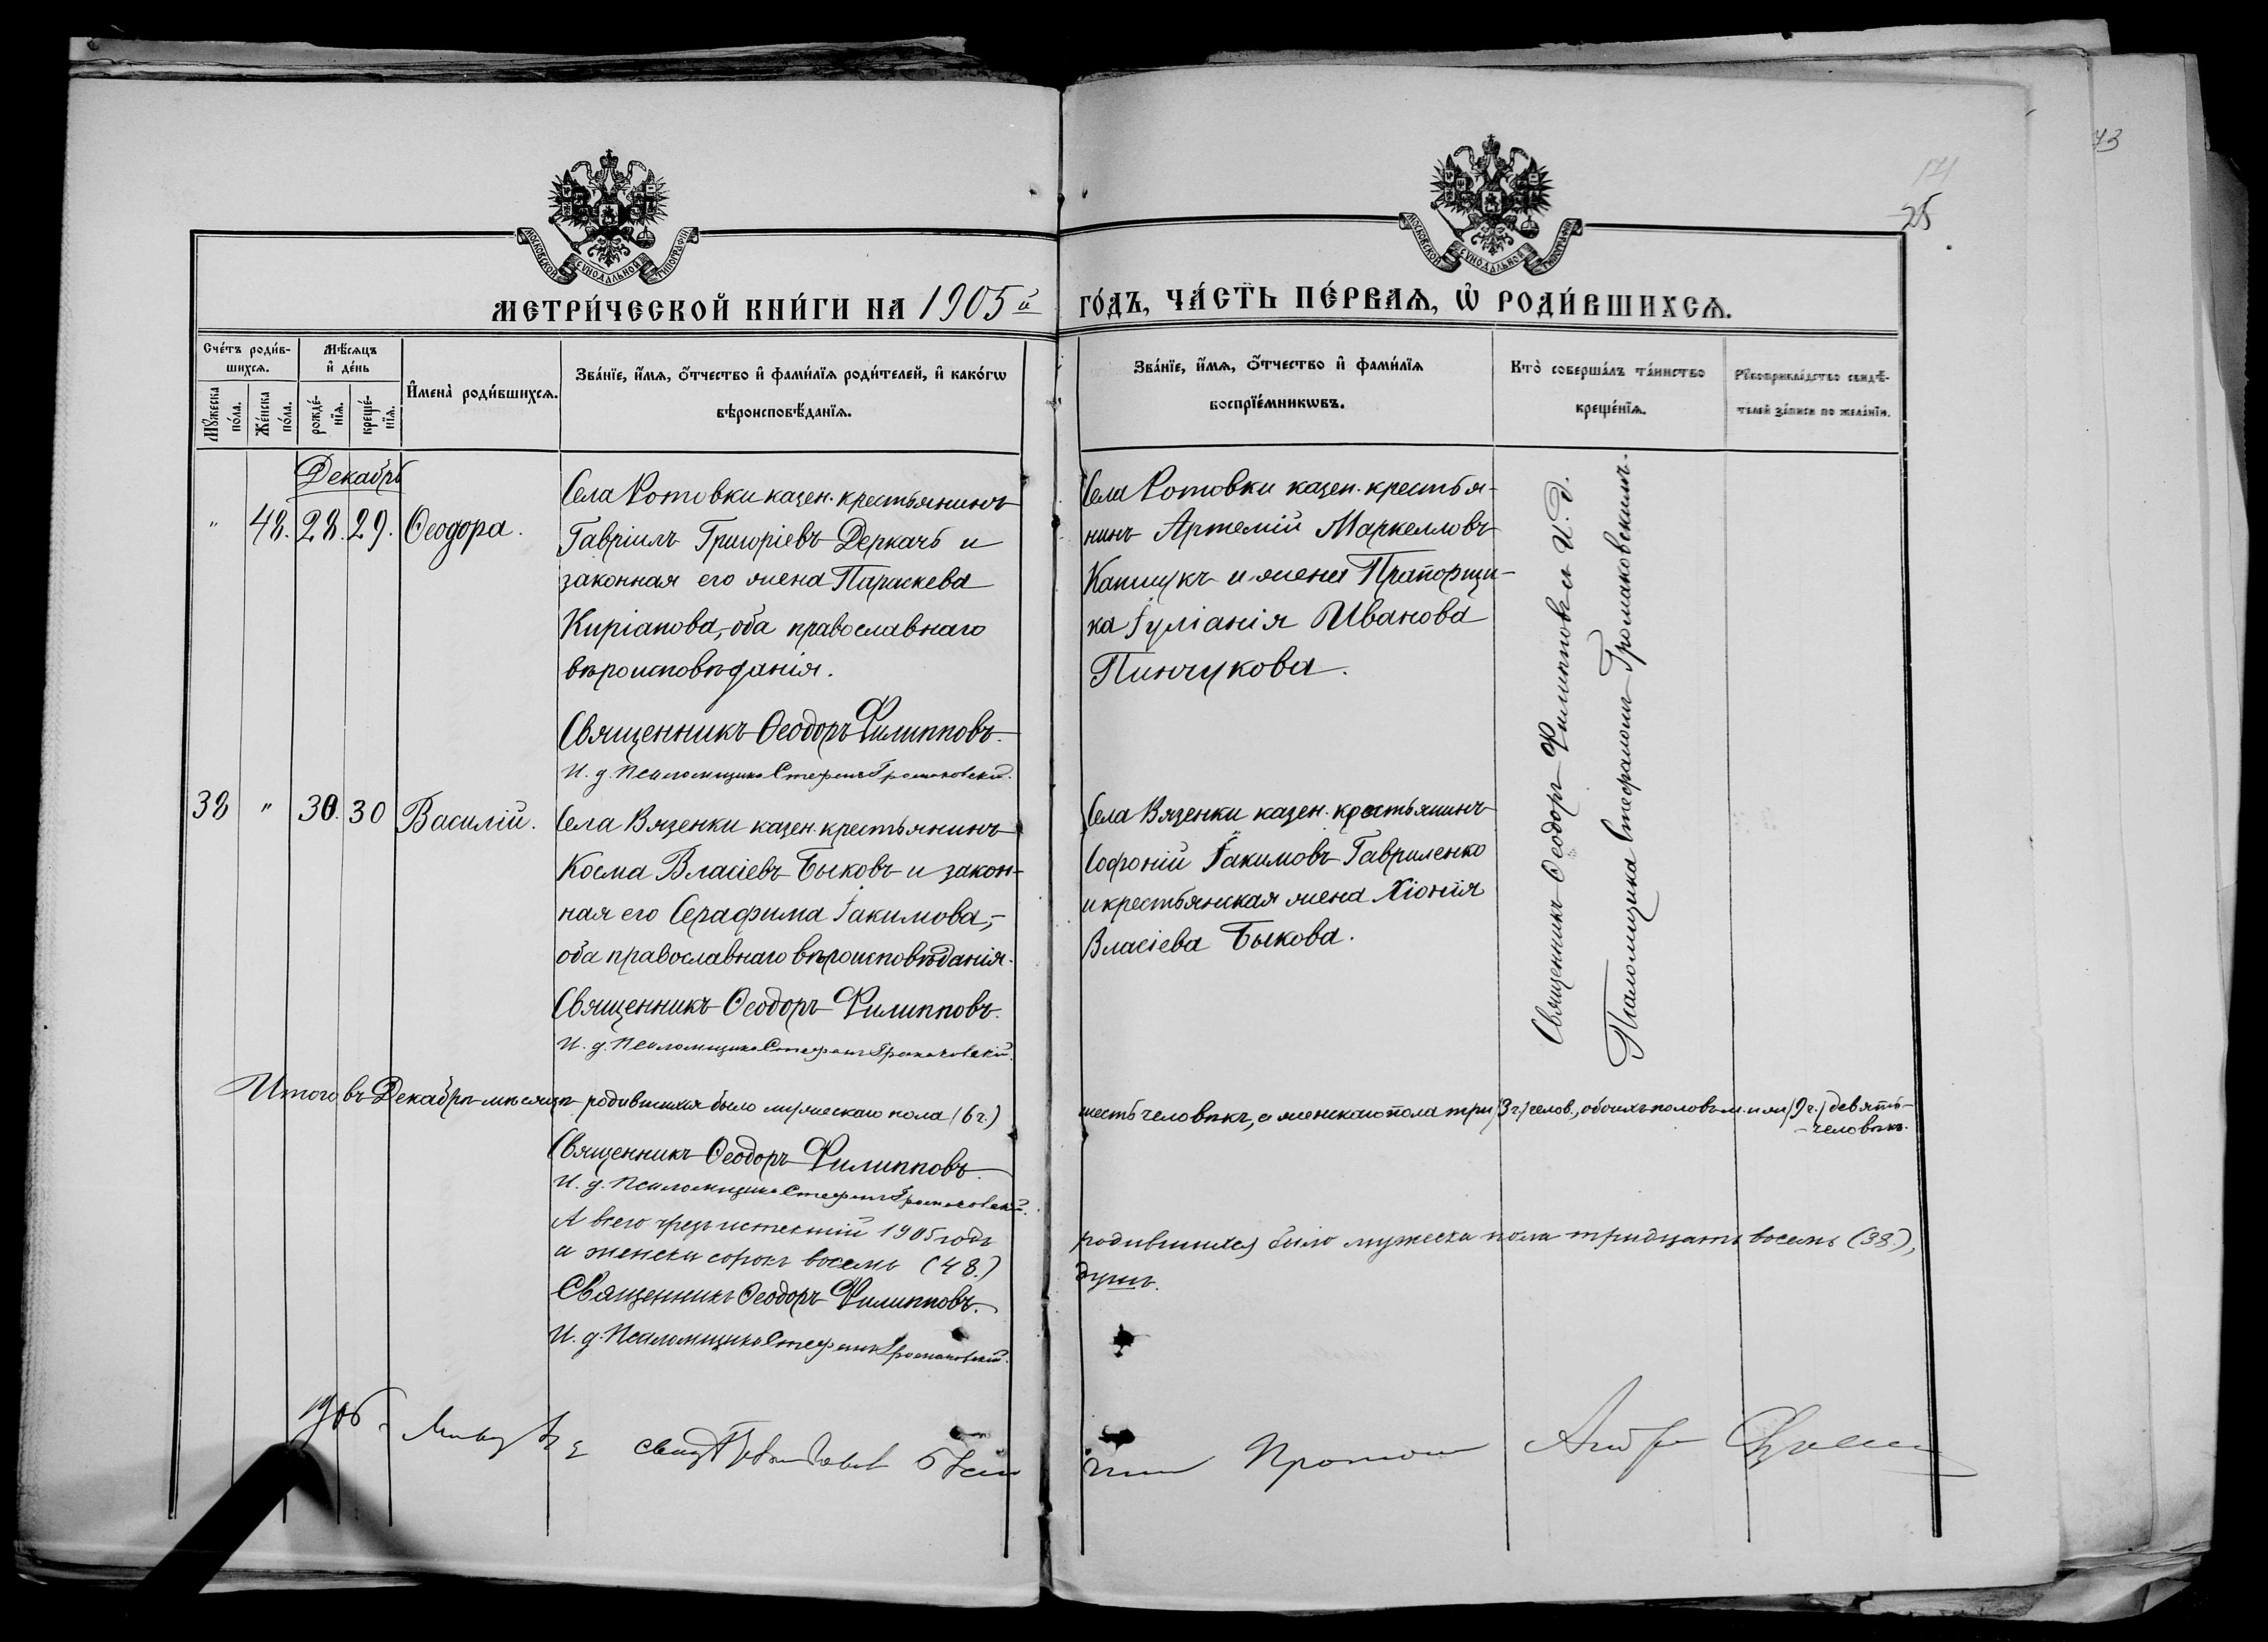 73
25
МОСКОВСКОЙ СѴНОДАЛЬНОЙ ТИПОГРАФІИ
МОСКОВСКОЙ СѴНОДАЛЬНОЙ ТИПОГРАФІИ
МЕТРИ́ЧЕСКОЙ КНИ́ГИ НА 1905й
ГО́ДЪ, ЧА́СТЬ ПЕ́РВАѦ, Ѡ҆ РОДИ́ВШИХСѦ.
Сче́тъ роди́в-
шихсѧ.
Мꙋжеска по́ла.
Же́нска по́ла.
Мѣ́сѧцъ
и҆ де́нь
рожде́-
нїѧ.
креще́-
нїѧ.
И҆мена̀ роди́вшихсѧ.
Зва́нїе, и҆́мѧ, ѻ҆́тчество и҆ фами́лїѧ роди́телей, и҆ како́гѡ
вѣроисповѣ́данїѧ.
Зва́нїе, и҆́мѧ, ѻ҆́тчество и҆ фами́лїѧ
воспрїе́мникѡвъ.
Кто̀ соверша́лъ та́инство
креще́нїѧ.
Рꙋкоприкла́дство свидѣ́-
телей за́писи по жела́нїю.
Декабрь
" 48. 28. 29. Ѳеодора.
Села Ротовки казен. крестьянинъ
Гавріилъ Григоріевъ Деркачъ и
законная его жена Параскева
Киріакова,-оба православнаго
вѣроисповѣданія.
Священникъ Ѳеодоръ Филипповъ.
И. д. Псаломщика Стефанъ Громаковскій.
Села Ротовки казен. крестья-
нинъ Артемій Маркелловъ
Капщукъ и жена Прапорщи-
ка Іуліанія Иванова
Пинчукова.
38 " 30. 30 Василій.
Села Вязенки казен. крестьянинъ
Косма Власіевъ Быковъ и закон-
ная его Серафима Іакимова,-
оба православнаго вѣроисповѣданія.
Священникъ Ѳеодоръ Филипповъ.
И. д. Псаломщика Стефанъ Громаковскій.
Села Вязенки казен. крестьянинъ
Софроній Іакимовъ Гавриленко
и крестьянская жена Хіонія
Власіева Быкова.
Священникъ Ѳеодоръ Филипповъ и И. д.
Псаломщика Стефаномъ Громаковскимъ.
Итого въ Декабрѣ мѣсяцѣ родившихся было мужескаго пола (6 ч.)
шесть человѣкъ, а женскаго пола три (3 ч.) челов., обоихъ половъ м. и ж. (9 ч.) девять
человѣкъ.
Священникъ Ѳеодоръ Филипповъ.
И. д. Псаломщика Стефанъ Громаковскій.
А всего чрезъ истекшій 1905 годъ
родившихся было мужеска пола тридцать восемь (38.),
а женска сорокъ восемь (48.)
душъ.
Священникъ Ѳеодоръ Филипповъ.
И. д. Псаломщика Стефанъ Громаковскій.
1906